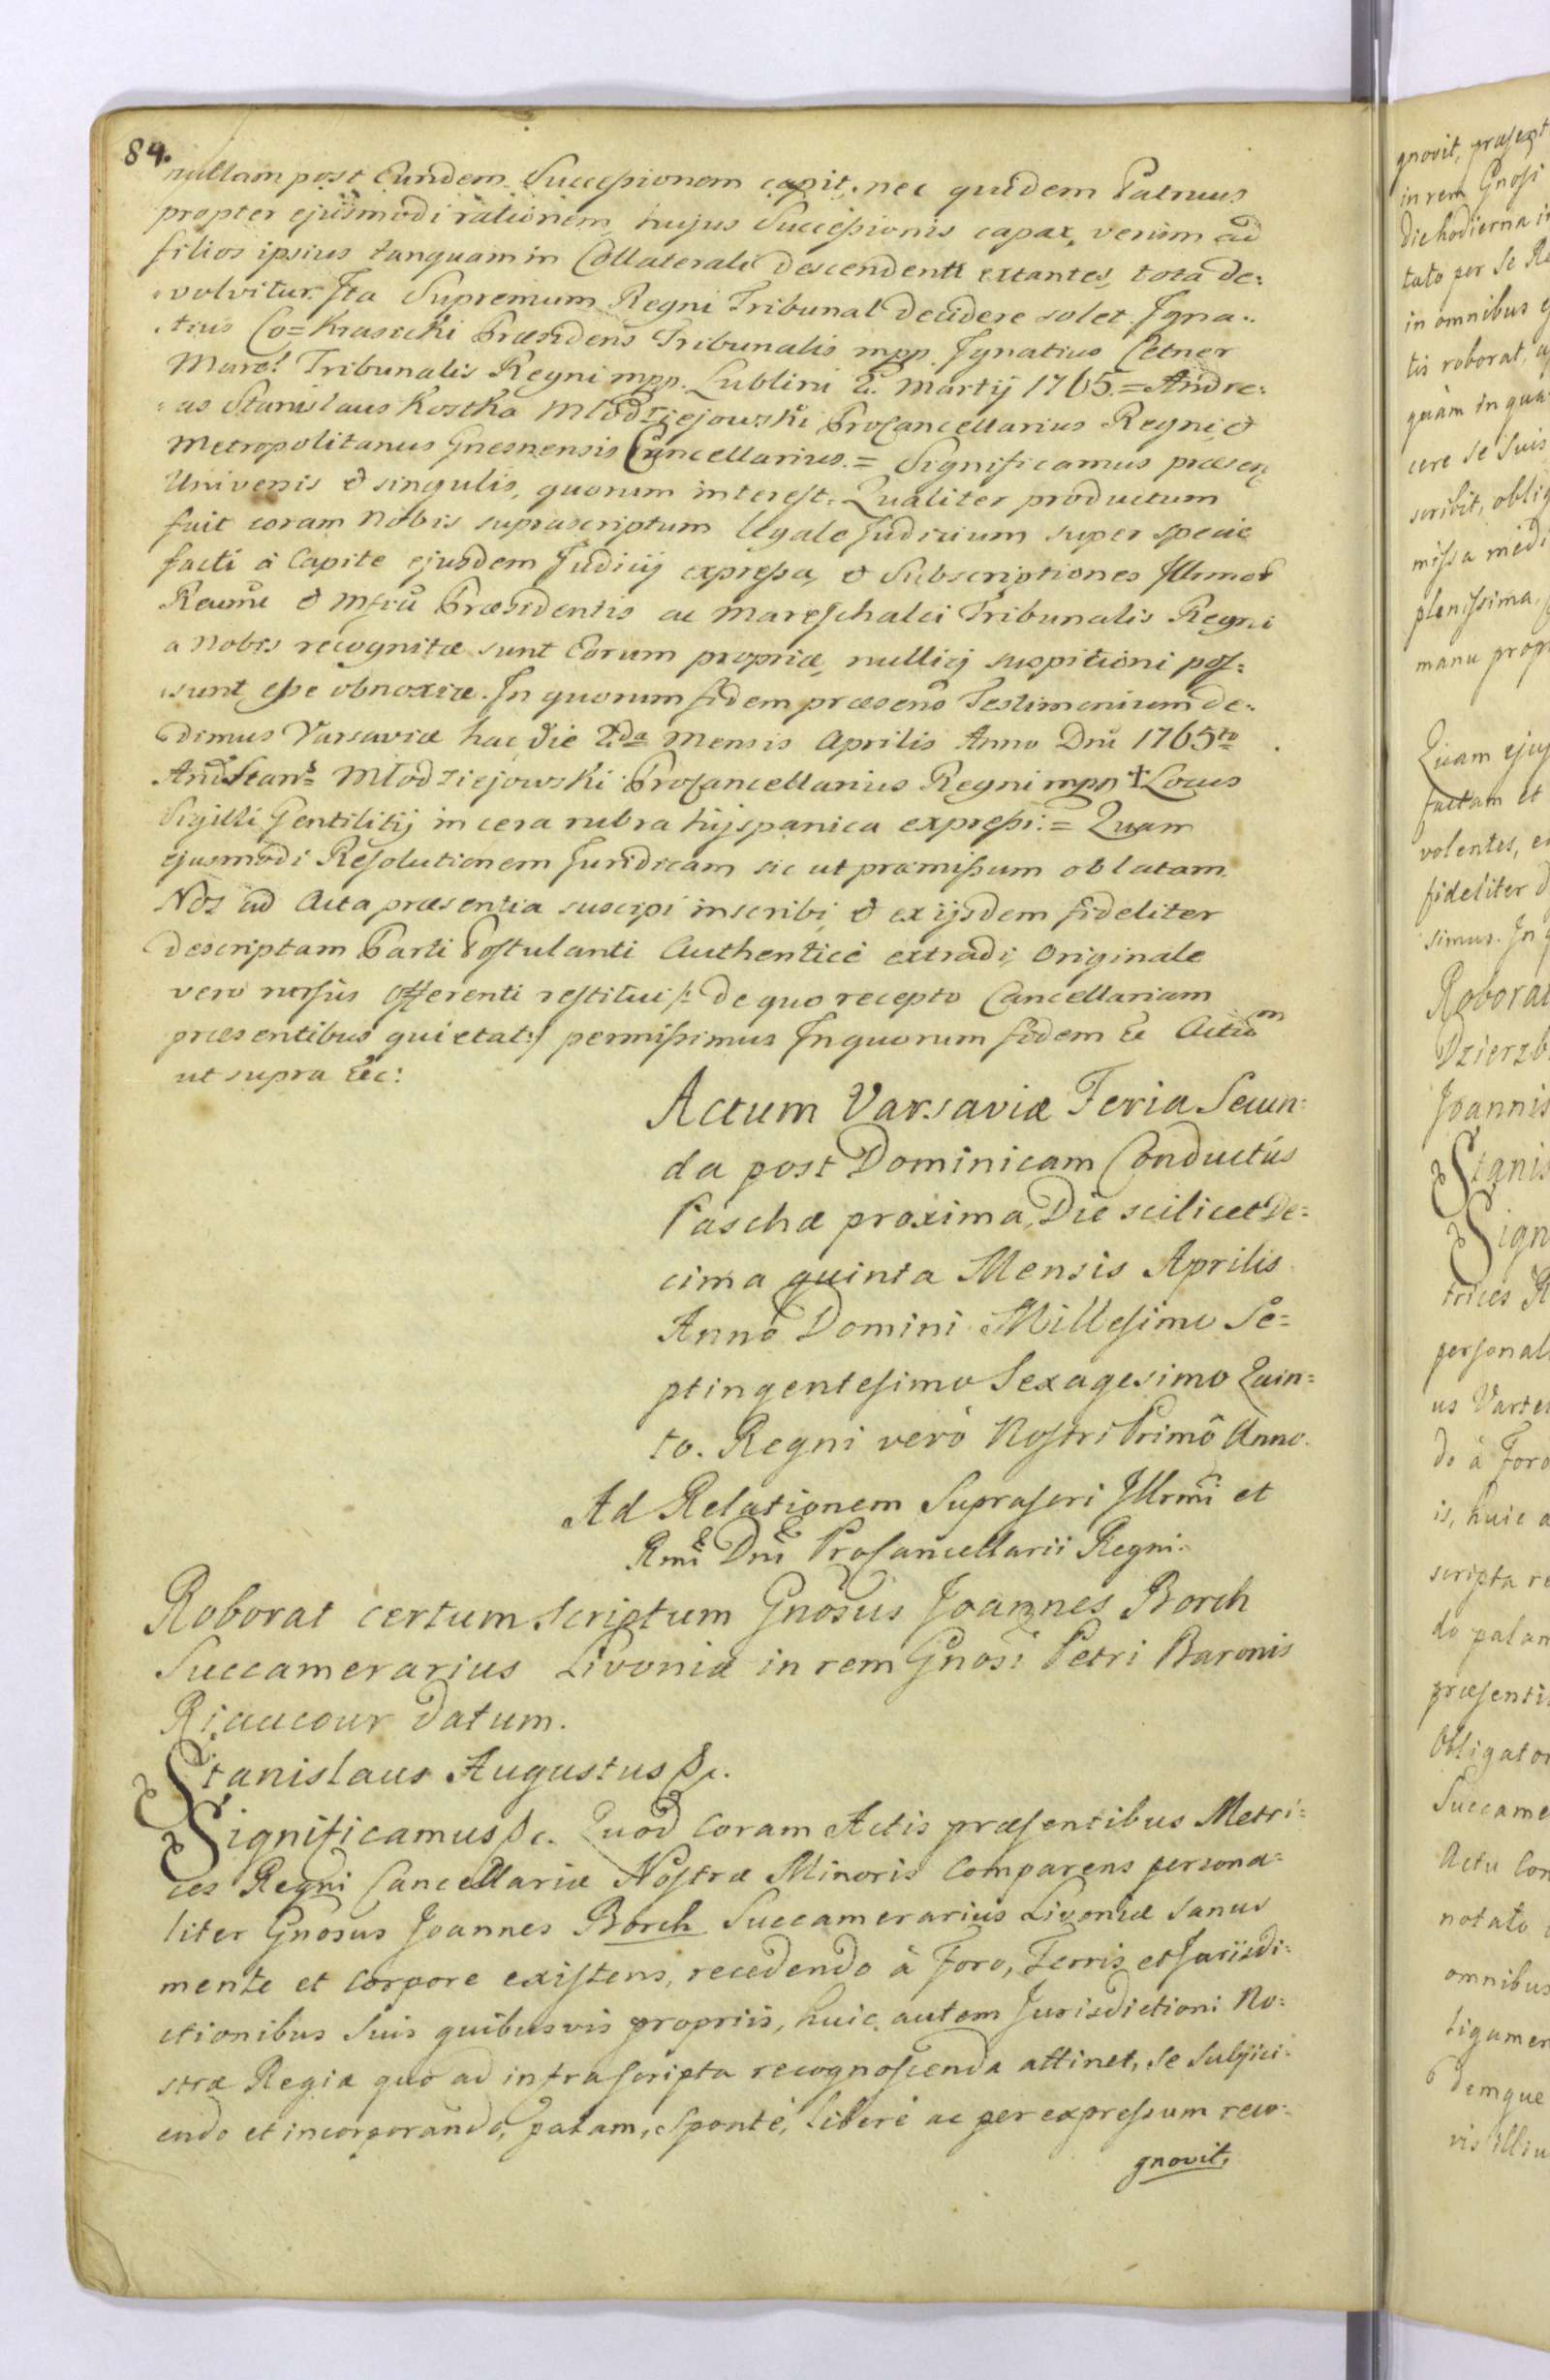 84.
nullam post Eundem Successionem capit, nec quidem Patruus
propter ejusmodi rationem hujus Successionis capax, verum ad
filios ipsius tanquam in Collaterali descendenti extantes, tota de:
volvitur. Ita Supremum Regni Tribunal decidere solet. Igna:
tius Co=Krasicki Præsidens Tribunalis mpp. Ignatius Cetner
Marsch. Tribunalis Regni mpp. Lublini 2. Martij 1765.= Andre:
as Stanislaus Kostka Młodziejowski ProCancellarius Regni, &
Metropolitanus Gnesnensis Cancellarius.= Significamus præsen
Univenis & singulis, quorum interest. Qualiter productum
fuit coram Nobis suprascriptum legale Judicium super specie
facti à Capite ejusdem Judicij expressa, & Subscriptiones Illrmor
& Præsidentis ac Mareschalci Tribunalis Regni
a Nobis recognitæ sunt Eorum propriæ, nullicj suspitioni pos:
sunt esse obnoxiæ. In quorum fidem præsens Testimonium de:
dimus Varsaviæ hac die 2da Mensis Aprilis Anno Dni 1765to
And Stans Młodziejowski ProCancellarius Regni mpp † Locus
Sigilli Gentilitij in cera rubra hyspanica expressi.= Quam
ejusmodi Resolutionem Juridicam sic ut præmissum oblatam
Nos ad Acta præsentia suscipi inscribi, & ex ijsdem fideliter
descriptam Parti Postulanti Authenticè extradi, Originale
vero rursus Offerenti restitui /: de quo recepto Cancellariam
præsentibus quietat:/ permissimus In quorum fidem &c Actum
ut supra &c:
Actum Varsaviæ Feria Secun:
da post Dominicam Conductûs
Paschæ proxima, Die scilicet De:
cima quinta Mensis Aprilis
Anno Domini Millesimo Se=
ptingentesimo Sexagesimo Quin:
to. Regni verò Nostri Primô Anno.
Ad Relationem Suprascri Illrmi et
Rmi Dni ProCancellarii Regni.
Roborat certum scriptum Gnosus Joannes Borch
Succamerarius Livoniæ in rem Gnosi Petri Baronis
Riaucour datum.
Stanislaus Augustus &c.
Significamus &c. Quod Coram Actis præsentibus Metri:
ces Regni Cancellariæ Nostræ Minoris Comparens persona:
liter Gnosus Joannes Borch Succamerarius Livoniæ sanus
mente et corpore existens, recedendo à Foro, Terris et Jurisdi:
ctionibus Suis quibusvis propriis, huic autem Jurisdictioni No:
stræ Regiæ quo ad infrascripta recognoscenda attinet, se subjici:
endo et incorporando, palam, Spontè, liberè ac per expressum reco:
gnovit,
gnovit, præsent
in rem Gnosi
die hodierna i
tato per se
in omnibus
tis roborat,
quàm in qua
cere se suis
scribit, oblig
missa medi
plenissima,
manu prop
Quam ejus
factam et
volentes, e
fideliter d
simus. In
Roborat
Dzierzb
Joannis
Stanis
Sign
trices R
personal
us Varte
do à Foro
is, huic a
scripta re
do palam
præsenti
Obligator
Succame
Actu Cor
notato
omnibus
ligamen
demque
vis illiu